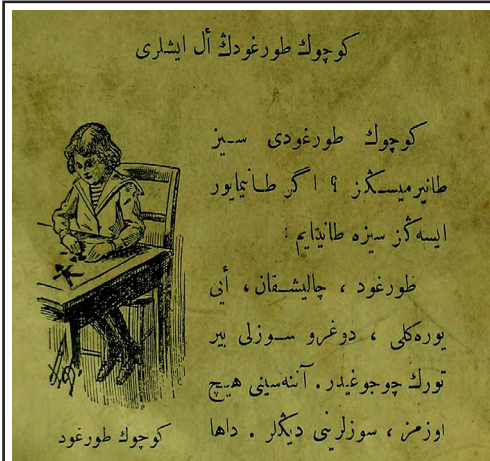 كوچوك طورغودڭ أل ايشلرى
كوچوك طورغودى سـيز
طانيرميسـڭز ؟ اگر طـانيمايور
ايسه‌ڭز سيزه طانيتايم :
طورغود ، چاليشـقان ، أيى
يوره‌كلى ، دوغرو سـوزلى بير
تورك چوجوغيدر . آننه‌سينى هيـچ
اوزمز ، سوزلرينى ديڭلر . داها
كوچوك طورغود